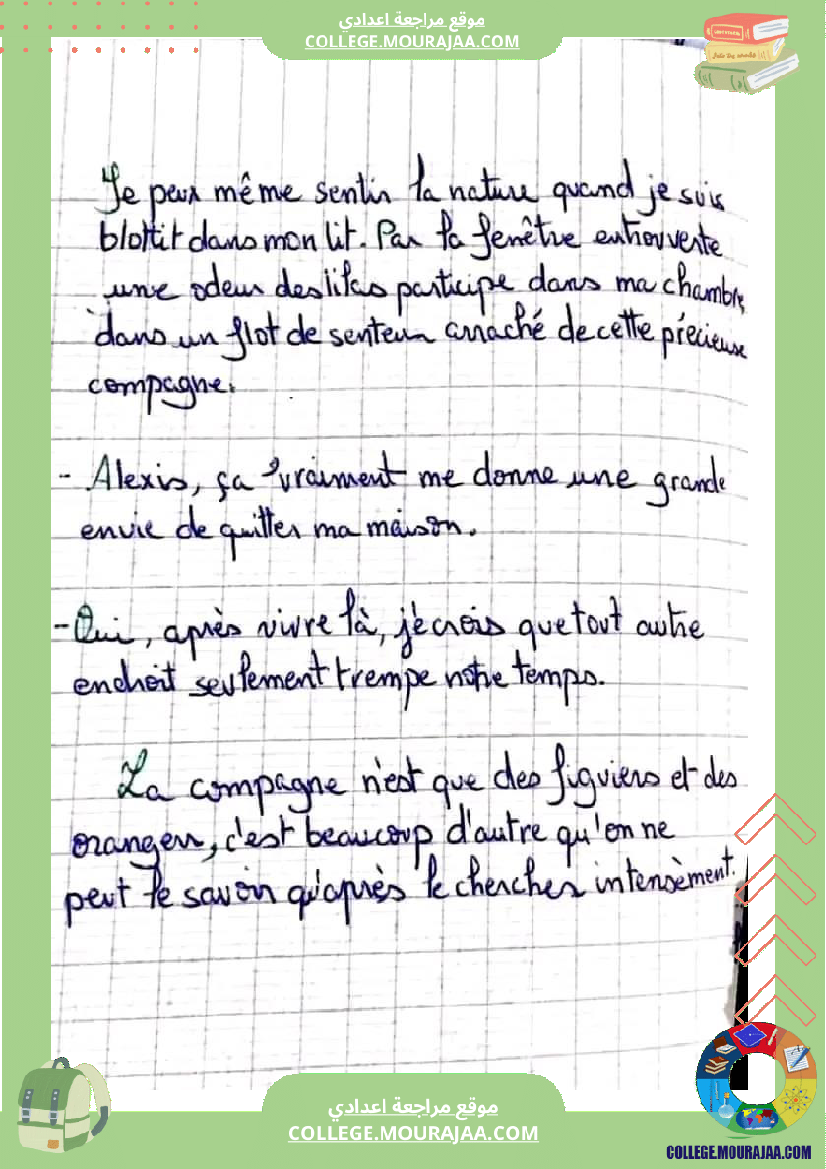 موقع مراجعة اعدادي
COLLEGE.MOURAJAA.COM
Je peux même sentir la nature quand je suis
blottit dans mon lit. Par la fenêtre entrouverte
une odeur des lilas participe dans ma chambre,
dans un flot de senteur arraché de cette précieuse
compagne.
- Alexis, ça vraiment me donne une grande
envie de quitter ma maison.
- Oui, après vivre là, je crois que tout autre
endroit seulement trempe notre temps.
La compagne n'est que des figuiers et des
orangers, c'est beaucoup d'autre qu'on ne
peut le savoir qu'après le chercher intensèment.
موقع مراجعة اعدادي
COLLEGE.MOURAJAA.COM
COLLEGE.MOURAJAA.COM